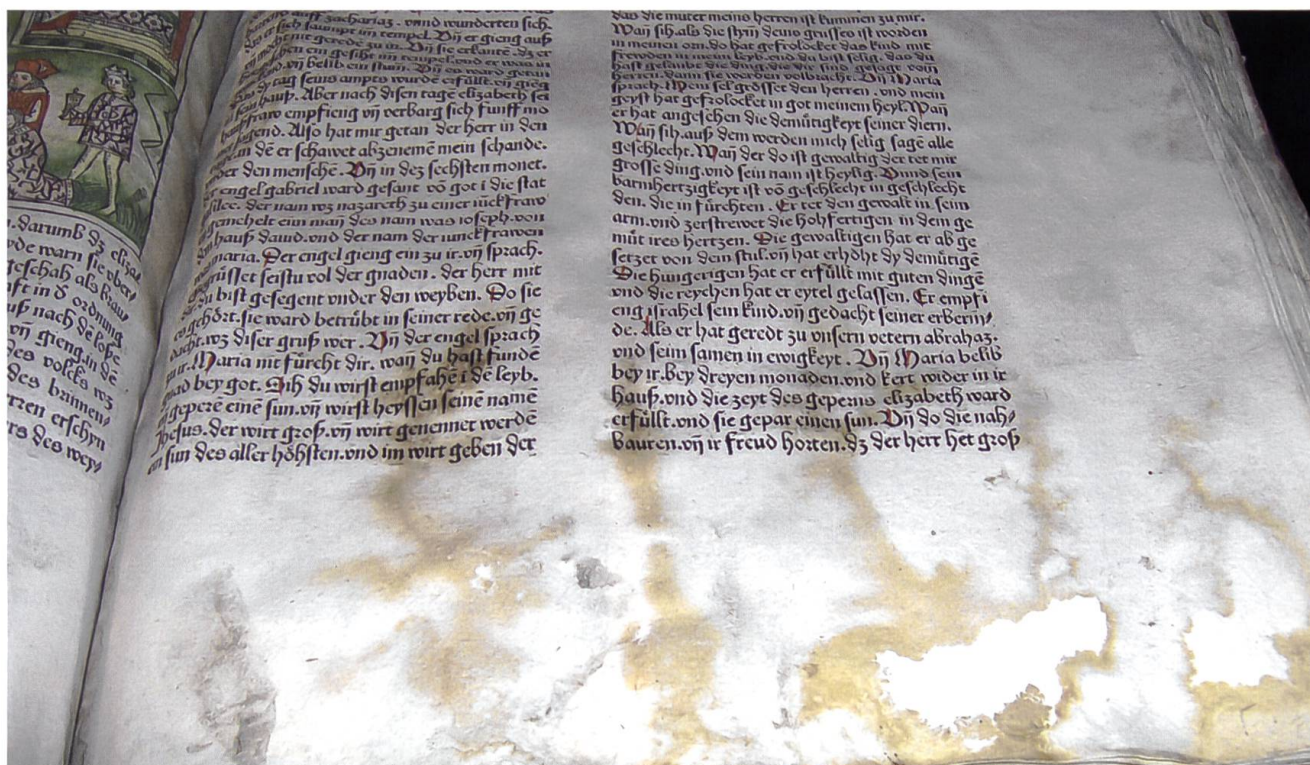 . darumb dz eliza⸗
de warn sie vber⸗
geschah als krau⸗
afft in d ordnung
uß nach dē lose
vñ gieng in dē
des volcks wz
des brinnen⸗
rren erschyn
rs des wey⸗
auff zachariaz. vnnd wunderten sich.
er sich saumpt im tempel. Vñ er gieng auß
vñ mocht nit gerede zu in. Vñ sie erkantē dz er
ein gesiht im tempel. vnd er was in
vñ belib ein stum. Vñ es ward getan
dy tag seins ampts wurdē erfüllt. vñ gieg
hauß. Aber nach disen tagē elizabeth sei
fraw empfieng vñ verbarg sich funff mo
sagend. Also hat mir getan der herr in den
in dē er schawet abzenemē mein schande.
vnder den menschē. Vñ in dez sechsten monet.
engel gabriel ward gesant vō got i die stat
der nam wz nazareth zu einer iūckfraw
gemehelt eim mañ des nam was ioseph. von
hauß dauid. vnd der nam der iunckfrawen
maria. Der engel gieng ein zu ir. vñ sprach.
gegrüsset seistu vol der gnaden. der herr mit
dir. du bist gesegent vnder den weyben. Do sie
es gehözt. sie ward betrübt in seiner rede. vñ ge
dacht. wz diser gruß wer. Vñ der engel sprach
zu ir. Maria nit fürcht dir. wañ du hast fundē
gnad bey got. Sih du wirst empfahē i dē leyb.
vñ geperē einē sun. vñ wirst heyssen seinē namē
Jhesus. der wirt groß. vñ wirt genennet werdē
ein sun des aller höhsten. vnd im wirt geben der
das die muter meins herren ist kummen zu mir.
Wañ sih. als die stym deins grusses ist worden
in meinen orn. do hat gefrolocket das kind mit
frewden in meim leyb. vnd du bist selig. das du
hast gelaubt die ding. die dir sind gesagt vom
herren. dann sie werden volbracht. Vñ Maria
sprach. Mein sel grösset den herren. vnd mein
geyst hat gefrolocket in got meinem heyl. Wañ
er hat angesehen die demütigkeyt seiner diern.
Wañ sih. auß dem werden mich selig sagē alle
geschlecht. Wañ der do ist gewaltig der tet mir
grosse ding. vnd sein nam ist heylig. Vnnd sein
barmhertzigkeyt ist vō geschlecht in geschlecht
den. die in fürchten. Er tet den gewalt in seim
arm. vnd zerstrewet die hohfertigen in dem ge
müt ires hertzen. Die gewaltigen hat er ab ge
setzet von dem stul. vñ hat erhöht dy demütigē
Die hungerigen hat er erfüllt mit guten dingē
vnd die reychen hat er eytel gelassen. Er empfi
eng israhel sein kind. vñ gedacht seiner erbern⸗
de. Als er hat geredt zu vnsern vetern abrahaz.
vnd seim samen in ewigkeyt. Vñ Maria belib
bey ir. Bey dreyen monaden. vnd kert wider in ir
hauß. vnd die zeyt des geperns elizabeth ward
erfüllt. vnd sie gepar einen sun. Vñ do die nah⸗
bauren. vñ ir freud horten. dz der herr het groß